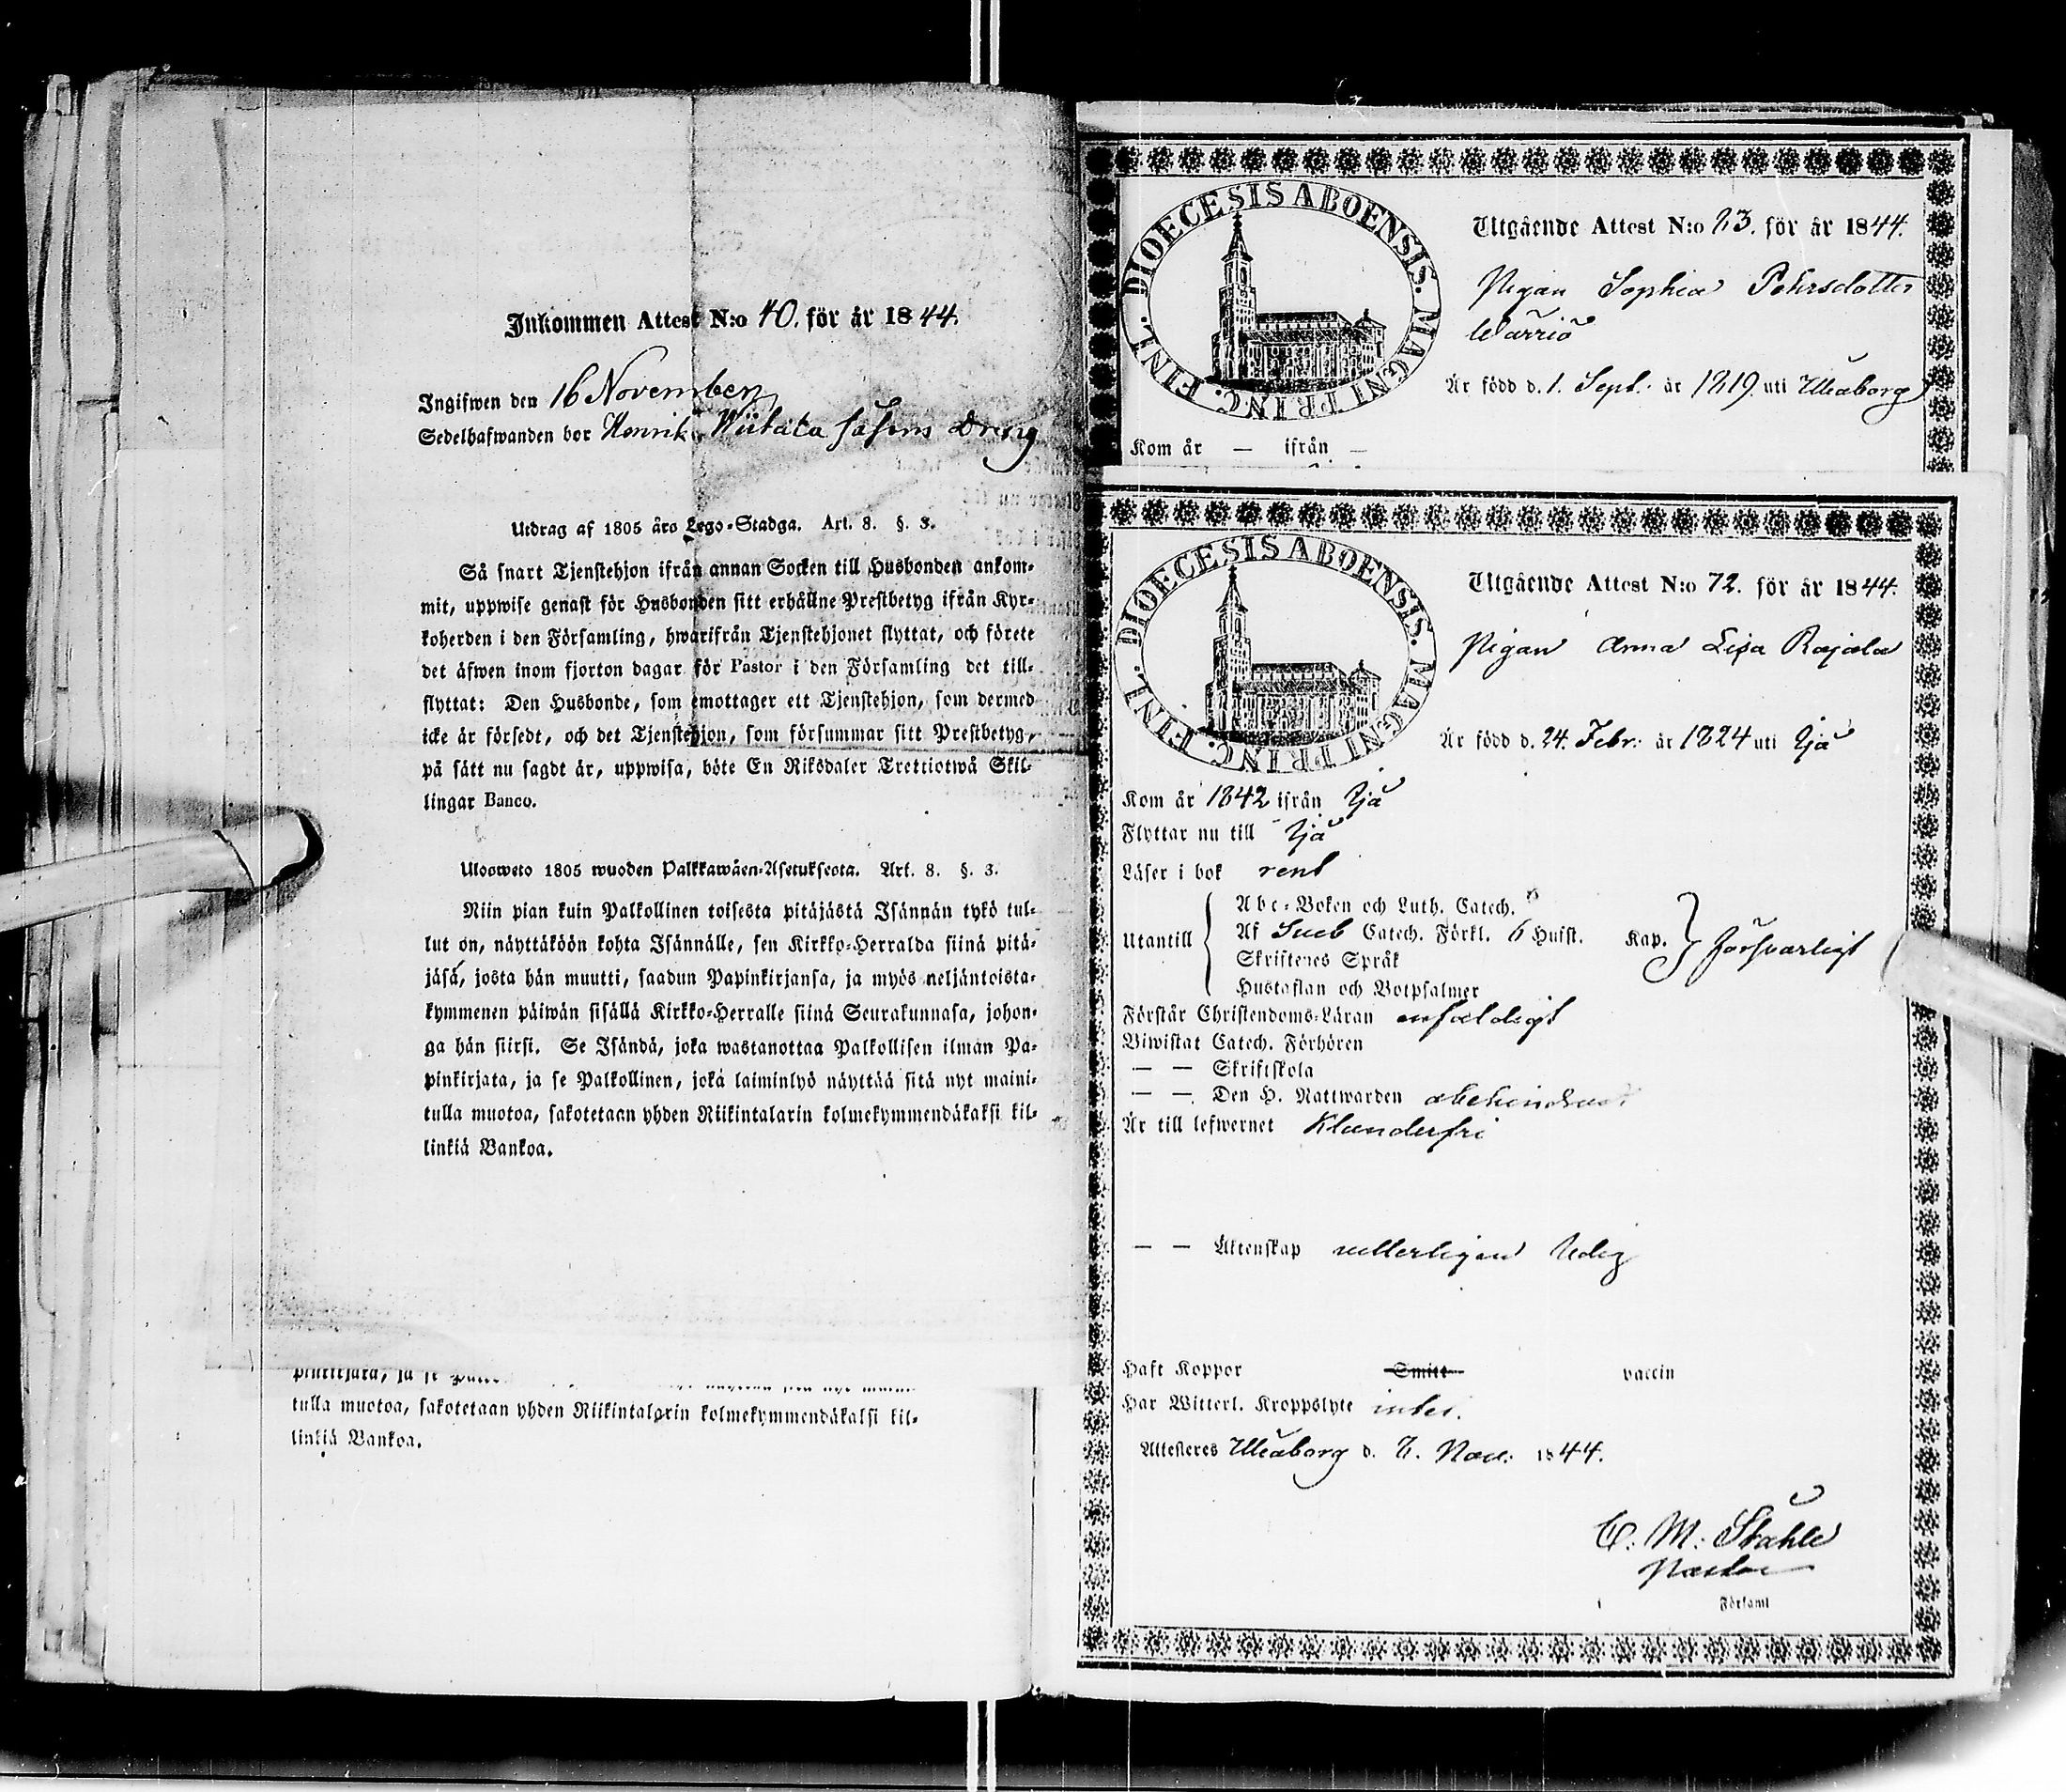 Inkommen Attest N:o 40. för år 1844.
Ingifwen den 16 November
Sedelhafwanden bor Henrik Dreng
Utdrag af 1805 års Lego-Stadga. Art. 8. §. 3.
Så snart Tjenstehjon ifrån annan Socken till Husbonden ankom-
mit, uppwise genast för Husbonden sitt erhållne Prestbetyg ifrån Kyr-
koherden i den Församling, hwarifrån Tjenstehjonet flyttat, och förete
det äfwen inom fjorton dagar för Pastor i den Församling det till-
flyttat: Den Husbonde, som emottager ett Tjenstehjon, som dermed
icke är försedt, och det Tjenstehjon, som försummar sitt Prestbetyg,
på sätt nu sagdt är, uppwisa, böte En Riksdaler Trettiotwå Skil-
lingar Banco.
Ulosweto 1805 wuoden Palkkawäen-Asetuksesta. Art. 8. §. 3.
Niin pian kuin Palkollinen toisesta pitäjästä Isännän tykö tul-
lut on, näyttäköön kohta Isännälle, sen Kirkko-Herralda siinä pitä-
jäsä, josta hän muutti, saadun Papinkirjansa, ja myös neljäntoista-
kymmenen päiwän sisällä Kirkko-Herralle siinä Seurakunnasa, johon-
ga hän siirsi. Se Isändä, joka wastanottaa Palkollisen ilman Pa-
pinkirjata, ja se Palkollinen, joka laiminlyö näyttää sitä nyt maini-
tulla muotoa, sakotetaan yhden Riikintalarin kolmekymmendäkaksi kil-
linkiä Bankoa.
pinkirjata, ja se
tulla muotoa, sakotetaan yhden Riikintalarin kolmekymmendäkaksi kil-
linkiä Bankoa.
DIOECESIS ABOENSIS. MAGNI PRINC. FINL.
Utgående Attest N:o 73. för år 1844.
Pigan Sophia Pehrsdotter
Wärriö
Är född d. 1. Sept. år 1819. uti Uleåborg
Kom år — ifrån —
DIOECESIS ABOENSIS. MAGNI PRINC. FINL.
Utgående Attest N:o 72. för år 1844.
Pigan Anna Lisa Rajala
Är född d. 24. Febr. år 1824 uti Ijå
Kom år 1842 ifrån Ijå
Flyttar nu till Ijå
Läser i bok rent
Utantill
Abc-Boken och Luth. Catech.
Af Sveb Catech. Förkl. 6 Hufst. Kap. försvarligt
Skriftenes Språk
Hustaflan och Botpsalmer
Förstår Christendoms-Läran enfaldigt
Biwistat Catech. Förhören
— — Skriftskola
— — Den H. Nattwarden obehindrad
Är till lefwernet Klanderfri
— — Äktenskap vetterligen ledig
Haft Koppor Smitt vaccin
Har Witterl. Kroppslyte intet.
Attesteres Uleåborg d. 7. Nov. 1844.
C. M. Ståhle
Pastor
i Församl